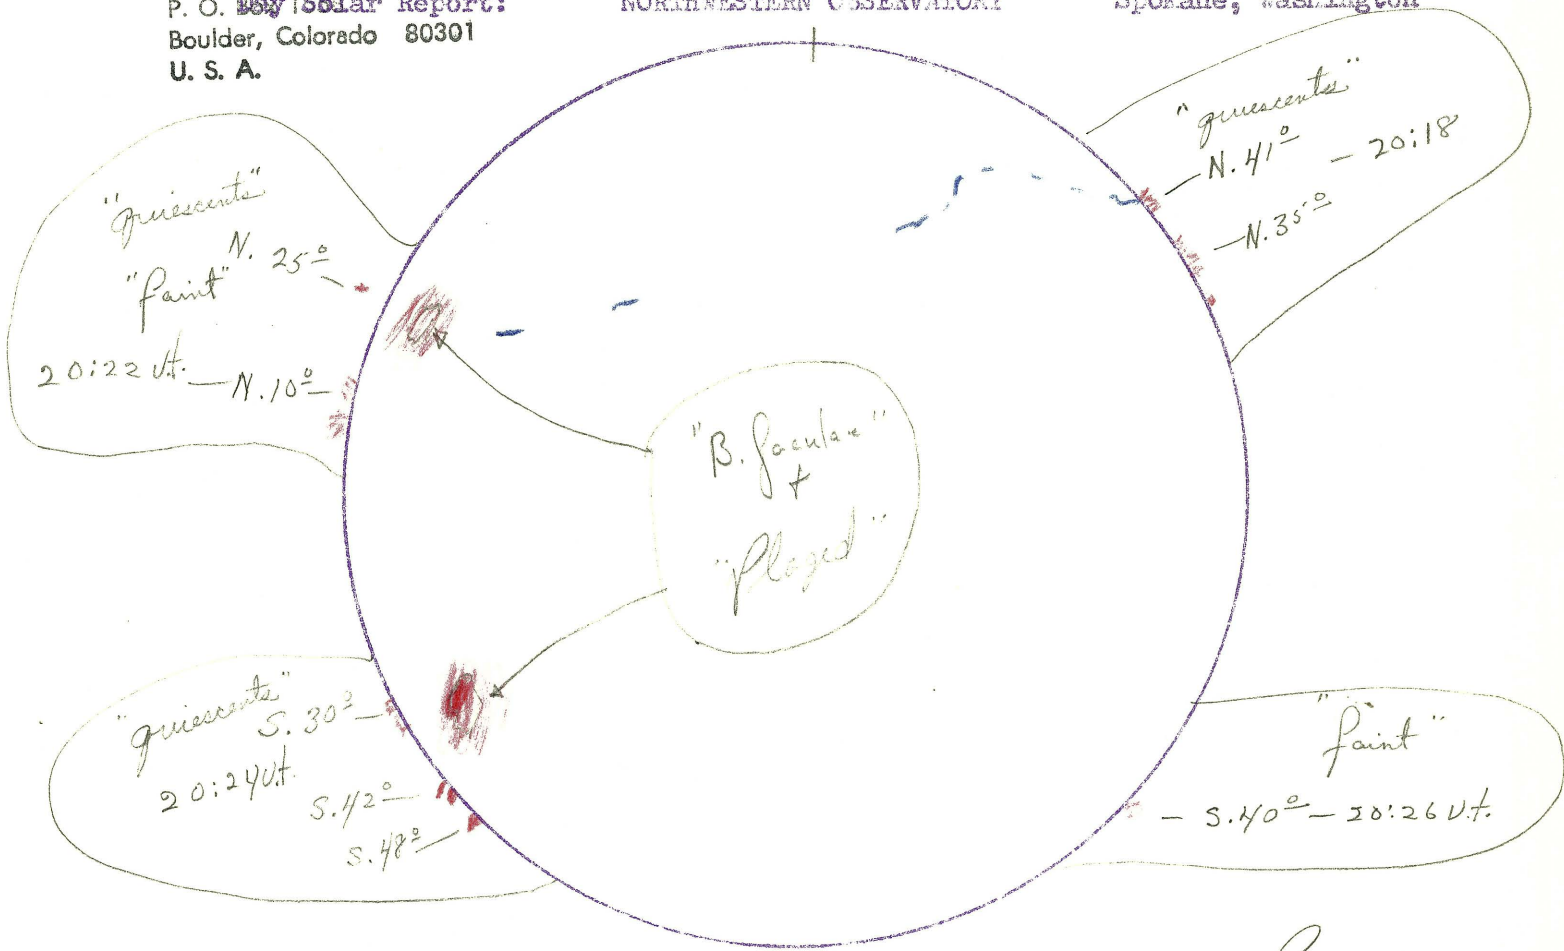 P. O. Solar Report: NORTHWESTERN OBSERVATORY Spokane, Washington
Boulder, Colorado 80301
U. S. A.
"quiescents"
N. 41° - 20:18
N. 35°
"quiescents"
N. 25°
"faint"
20:22 U.t. - N. 10°
"B. faculae"
+
"Plaged"
"quiescents"
S. 30°
20:24 U.t.
S. 42°
S. 48°
"faint"
- S. 40° - 20:26 U.t.